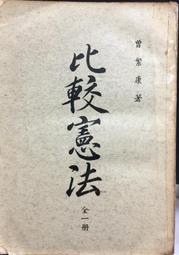 曾繁康著
比較憲法
全一册